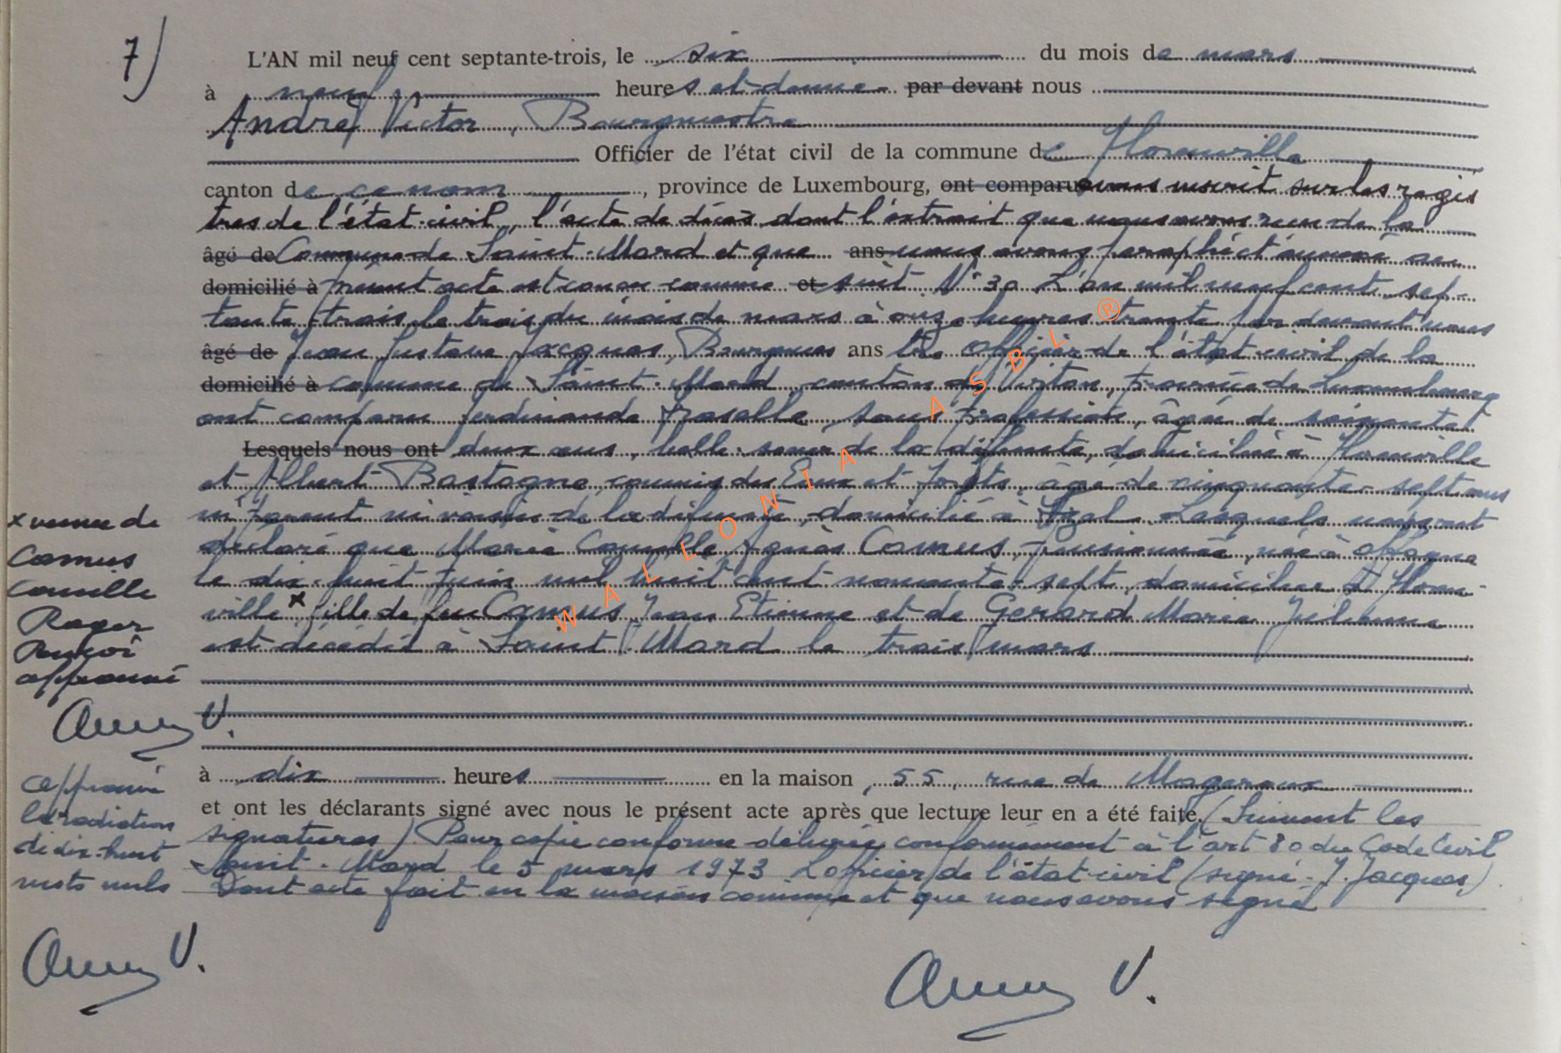 7)
L'AN mil neuf cent septante-trois, le six du mois de mars
à neuf heures et demie par devant nous
André Victor, Bourgmestre
Officier de l'état civil de la commune de Florenville
canton de ce nom, province de Luxembourg, ont comparu avons inscrit sur les regis
tres de l'état-civil, l'acte de décès dont l'extrait que nous avons reçu de la
âgé de Commune de Saint-Mard et que ans nous avons paraphé et annexé au
domicilié à présent acte est conçu comme et suit N° 30 L'an mil neuf cent sep-
tante-trois, le trois du mois de mars à onze heures trente par devant nous
âgé de Jean Gustave Jacques, Bourgmes ans tre Officier de l'état-civil de la
domicilié à commune de Saint-Mard, canton de Virton, province de Luxembourg
ont comparu Ferdinande Fraselle, sans profession, âgée de soixante et
Lesquels nous ont deux ans, belle-sœur de la défunte, domiciliée à Florenville
et Albert Bastogne, commis des Eaux et Forêts, âgé de cinquante-sept ans
ni parent ni voisin de la défunte, domicilié à Izel. Lesquels nous ont
déclaré que Marie Camille Agnès Camus, pensionnée, née à Offagne
le dix-huit juin mil huit cent nonante-sept, domiciliée à Floren-
ville x fille de feu Camus Jean Etienne et de Gerard Marie Julienne
est décédée à Saint-Mard le trois mars
x veuve de
Camus
Camille
Roger
Renvoi
approuvé
V.
à dix heures en la maison, 55, rue de
et ont les déclarants signé avec nous le présent acte après que lecture leur en a été faite. (Suivent les
signatures) Pour copie conforme délivrée conformément à l'art 80 du Code Civil
Saint-Mard le 5 mars 1973 L'officier de l'état-civil (signé J. Jacques)
Dont acte fait en la maison commune et que nous avons signé
approuvé
la radiation
de dix-huit
mots nuls
V.
V.
WALLONIA ASBL ®